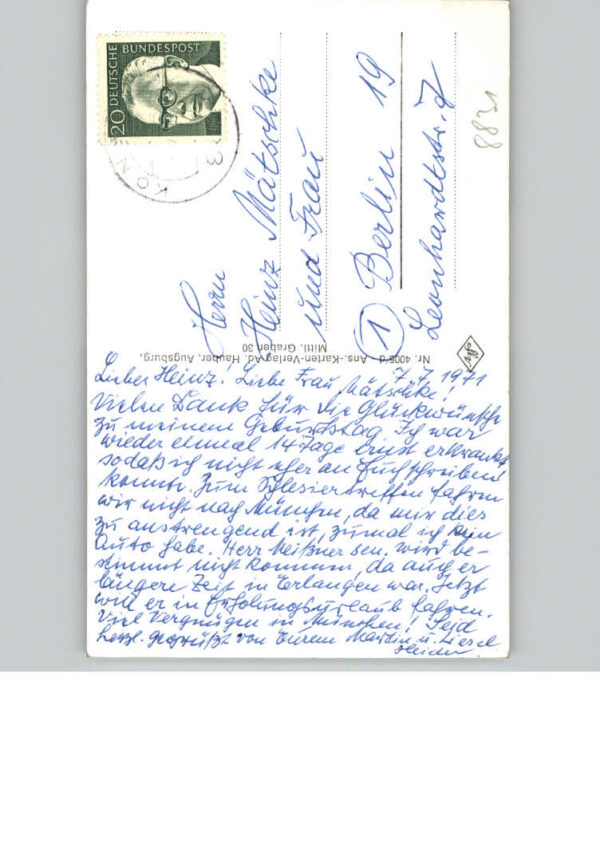 20 DEUTSCHE BUNDESPOST
Herrn
Heinz Mätschke
und Frau
1 Berlin 19
Leonhardtstr. 7
8831
Nr. 4005/d - Ans.-Karten-Verlag Ad. Hauber, Augsburg,
Mittl. Graben 30
7.7.1971
Lieber Heinz! Liebe Frau Mätschke!
Vielen Dank für die Glückwünsche
zu meinem Geburtstag. Ich war
wieder einmal 14 Tage ernst erkrankt
sodaß ich nicht eher an Euch schreiben
konnte. Zum Schlesiertreffen fahren
wir nicht nach München, da mir dies
zu anstrengend ist, zumal ich kein
Auto habe. Herr Meißner sen. wird be-
stimmt nicht kommen, da auch er
längere Zeit in Erlangen war. Jetzt
will er in Erholungsurlaub fahren.
Viel Vergnügen in München! Seid
herzl. gegrüßt von Eurem Martin u. Liesel